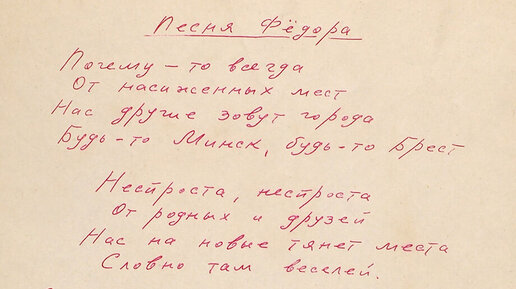 Песня Фёдора
Почему-то всегда
От насиженных мест
Нас другие зовут города
Будь-то Минск, будь-то Брест
Неспроста, неспроста
От родных и друзей
Нас на новые тянет места
Словно там веселей.